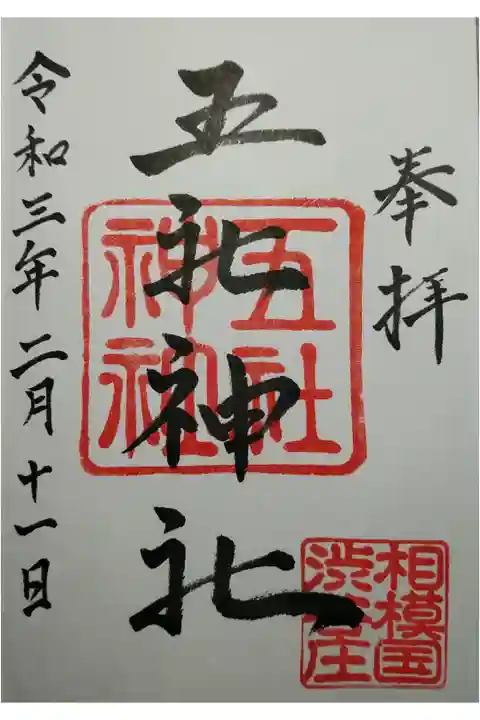 奉拝
五社神社
五社
神社
相模国
渋谷庄
令和三年二月十一日